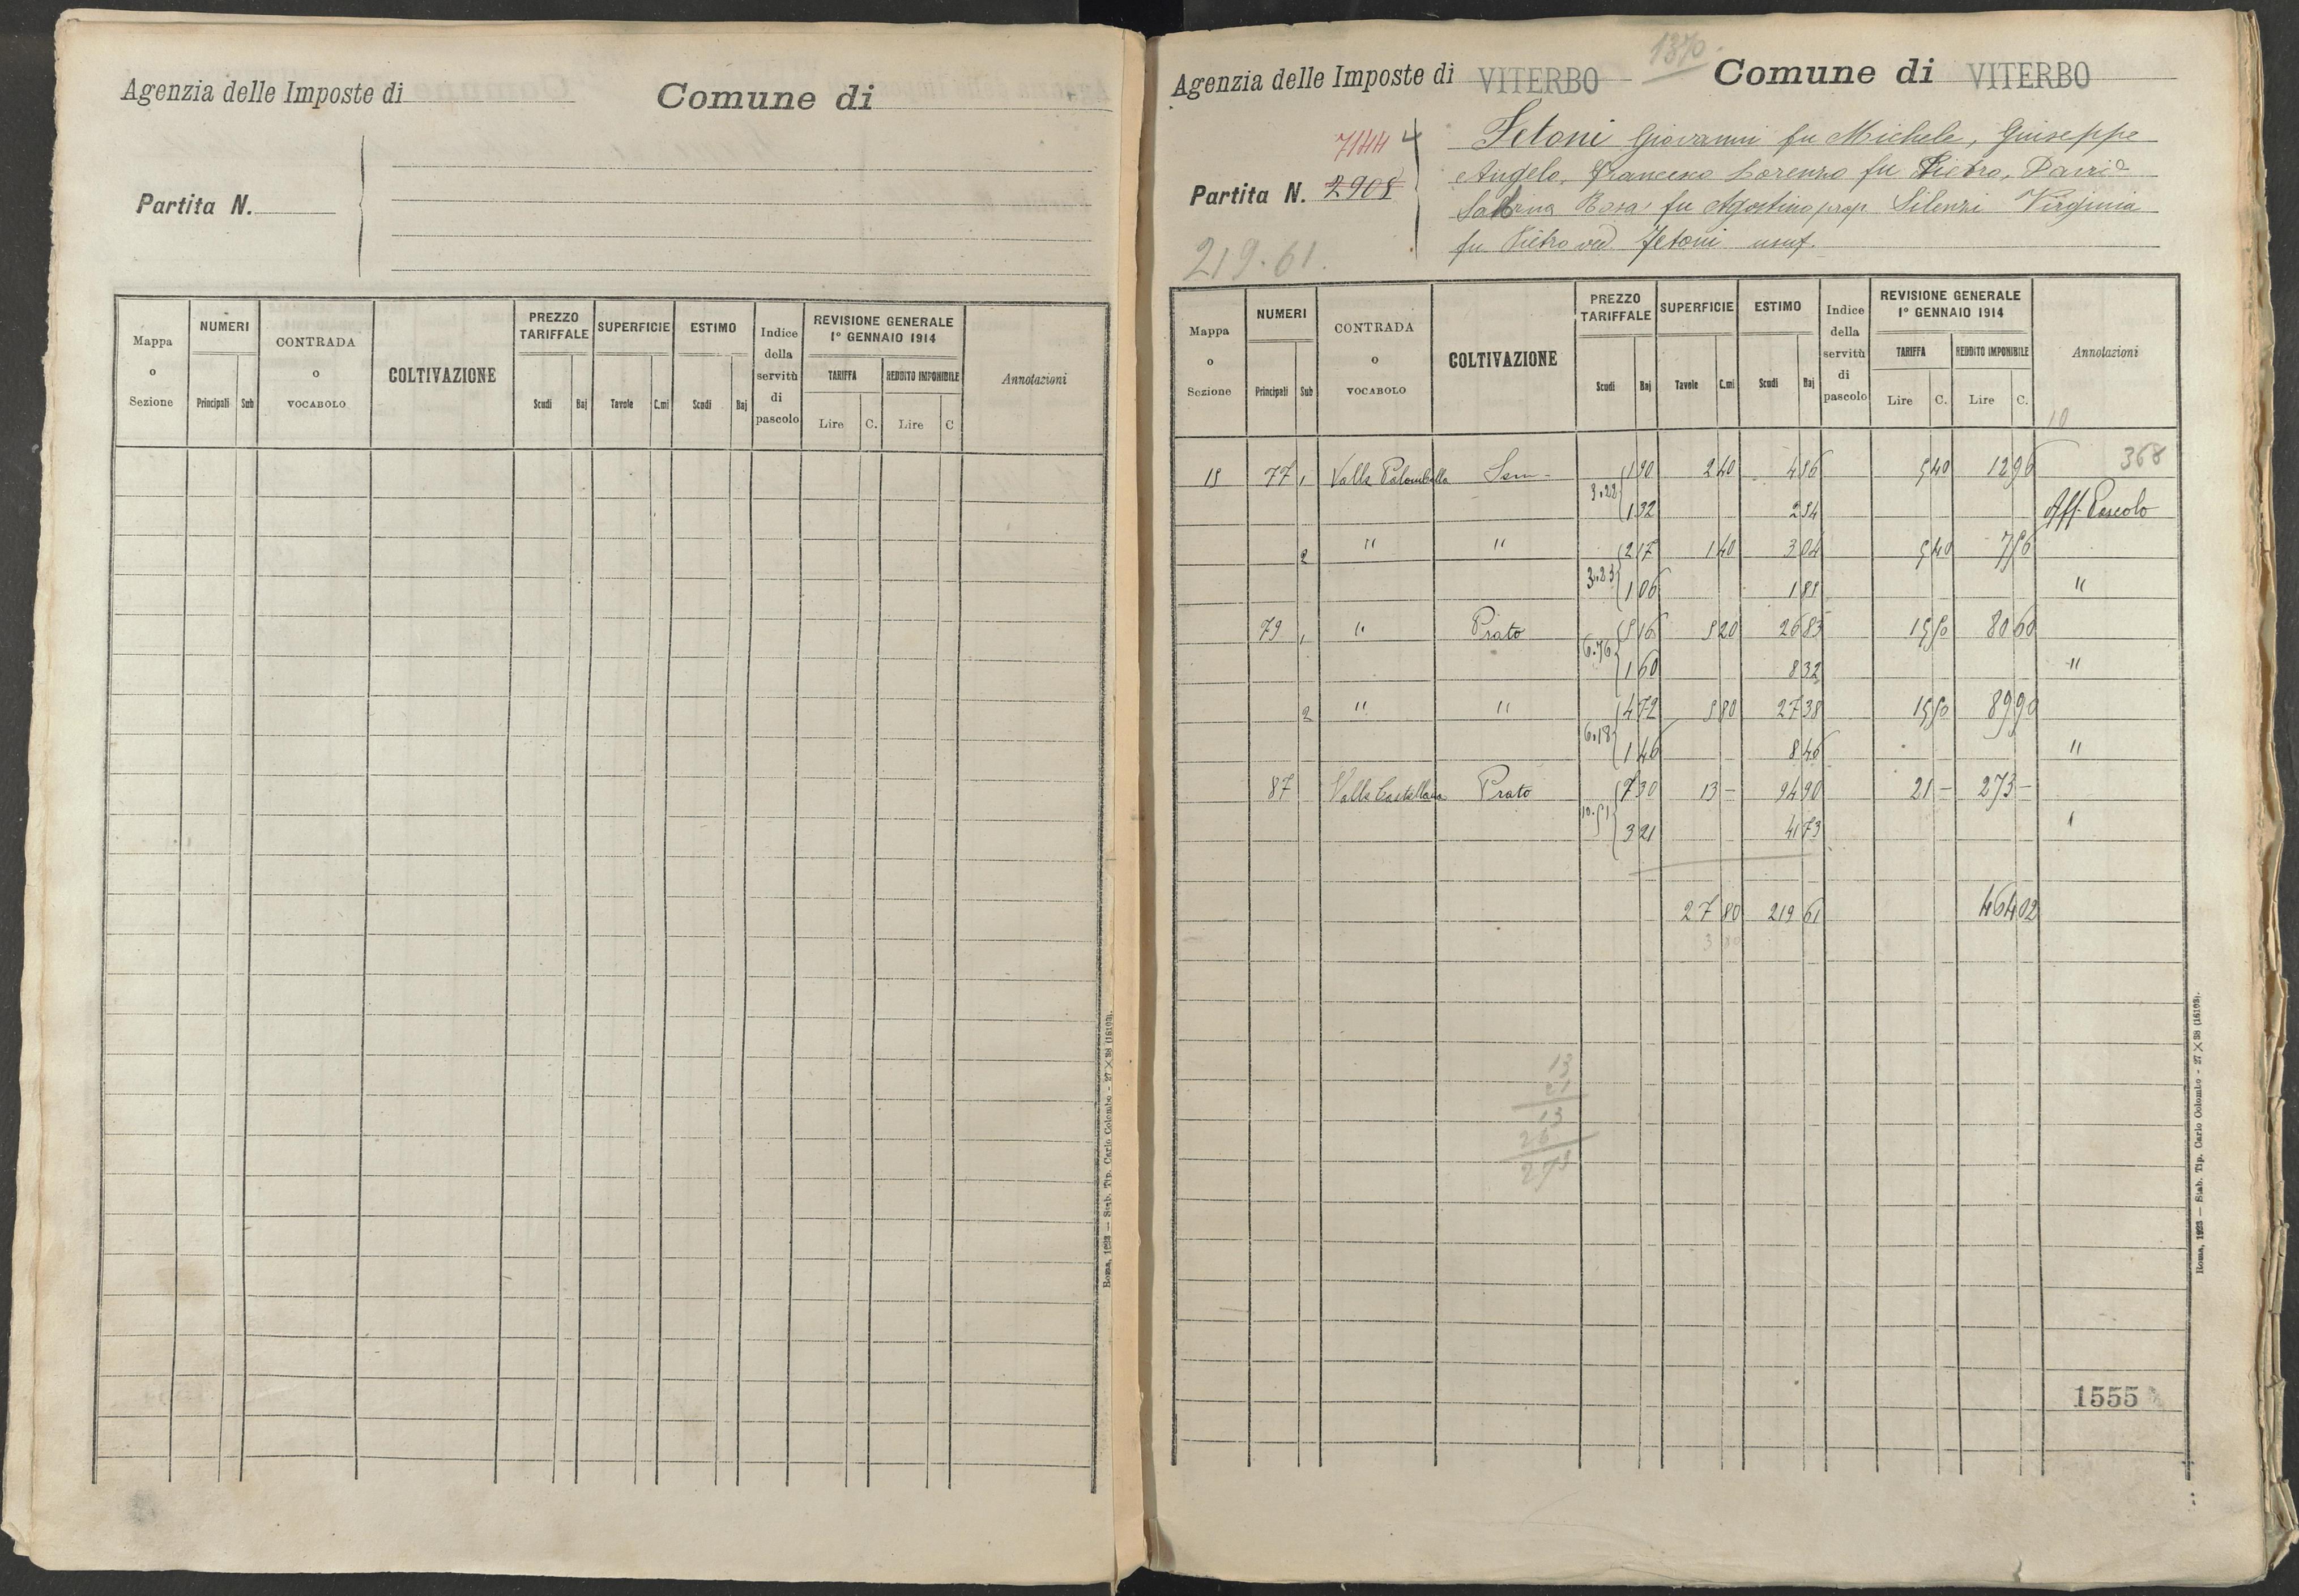 Agenzia delle Imposte di
Comune di
Partita N.
Mappa o Sezione
NUMERI
Principali Sub
CONTRADA o VOCABOLO
COLTIVAZIONE
PREZZO TARIFFALE
Scudi Baj
SUPERFICIE
Tavole C.mi
ESTIMO
Scudi Baj
Indice della servitù di pascolo
REVISIONE GENERALE
1° GENNAIO 1914
TARIFFA
Lire C.
REDDITO IMPONIBILE
Lire C
Annotazioni
Roma, 1923 — Stab. Tip. Carlo Colombo - 27 × 38 (16103).
1370
Agenzia delle Imposte di VITERBO Comune di VITERBO
7144 4
Partita N. 2908
219.61.
Fetoni Giovanni fu Michele, Giuseppe
Angelo, Francesco Lorenzo fu Pietro,
Rosa fu Agostino prop. Silenzi Virginia
fu Pietro ved. Fetoni usuf.
Mappa o Sezione
NUMERI
Principali Sub
CONTRADA o VOCABOLO
COLTIVAZIONE
PREZZO TARIFFALE
Scudi Baj
SUPERFICIE
Tavole C.mi
ESTIMO
Scudi Baj
Indice della servitù di pascolo
REVISIONE GENERALE
1° GENNAIO 1914
TARIFFA
Lire C.
REDDITO IMPONIBILE
Lire C.
Annotazioni
10
368
15 77 1 Valle Palombella Sem- 1 90 2 40 4 56 5 40 12 96
3.22 1 32 2 54 Aff. Pascolo
2 " " 2 17 1 40 3 04 5 40 7 56
3.23 1 06 1 51 "
79 1 " Prato 5 16 5 20 26 83 15 50 80 60
6.76 1 60 8 32 "
2 " " 4 72 5 80 27 38 15 50 89 90
6.18 1 46 8 46 "
87 Valle Castellana Prato 7 30 13 - 94 90 21 - 273 -
10.51 3 21 41 73 "
27 80 219 61 464 02
13
21
13
26
273
1555
Roma, 1923 — Stab. Tip. Carlo Colombo - 27 × 38 (16103).